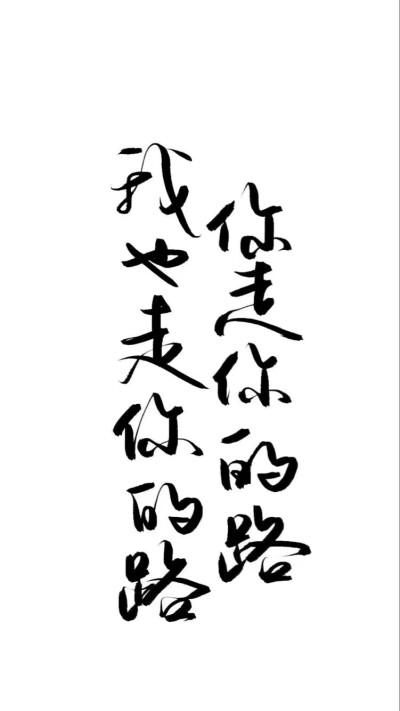 你走你的路
我也走你的路